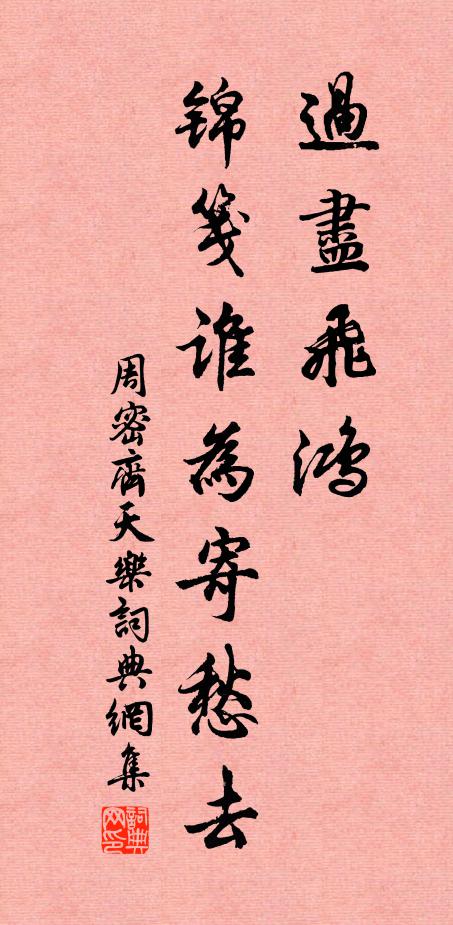 過盡飛鴻
錦箋誰為寄愁去
周密齊天樂詞典網集
詞典
网印